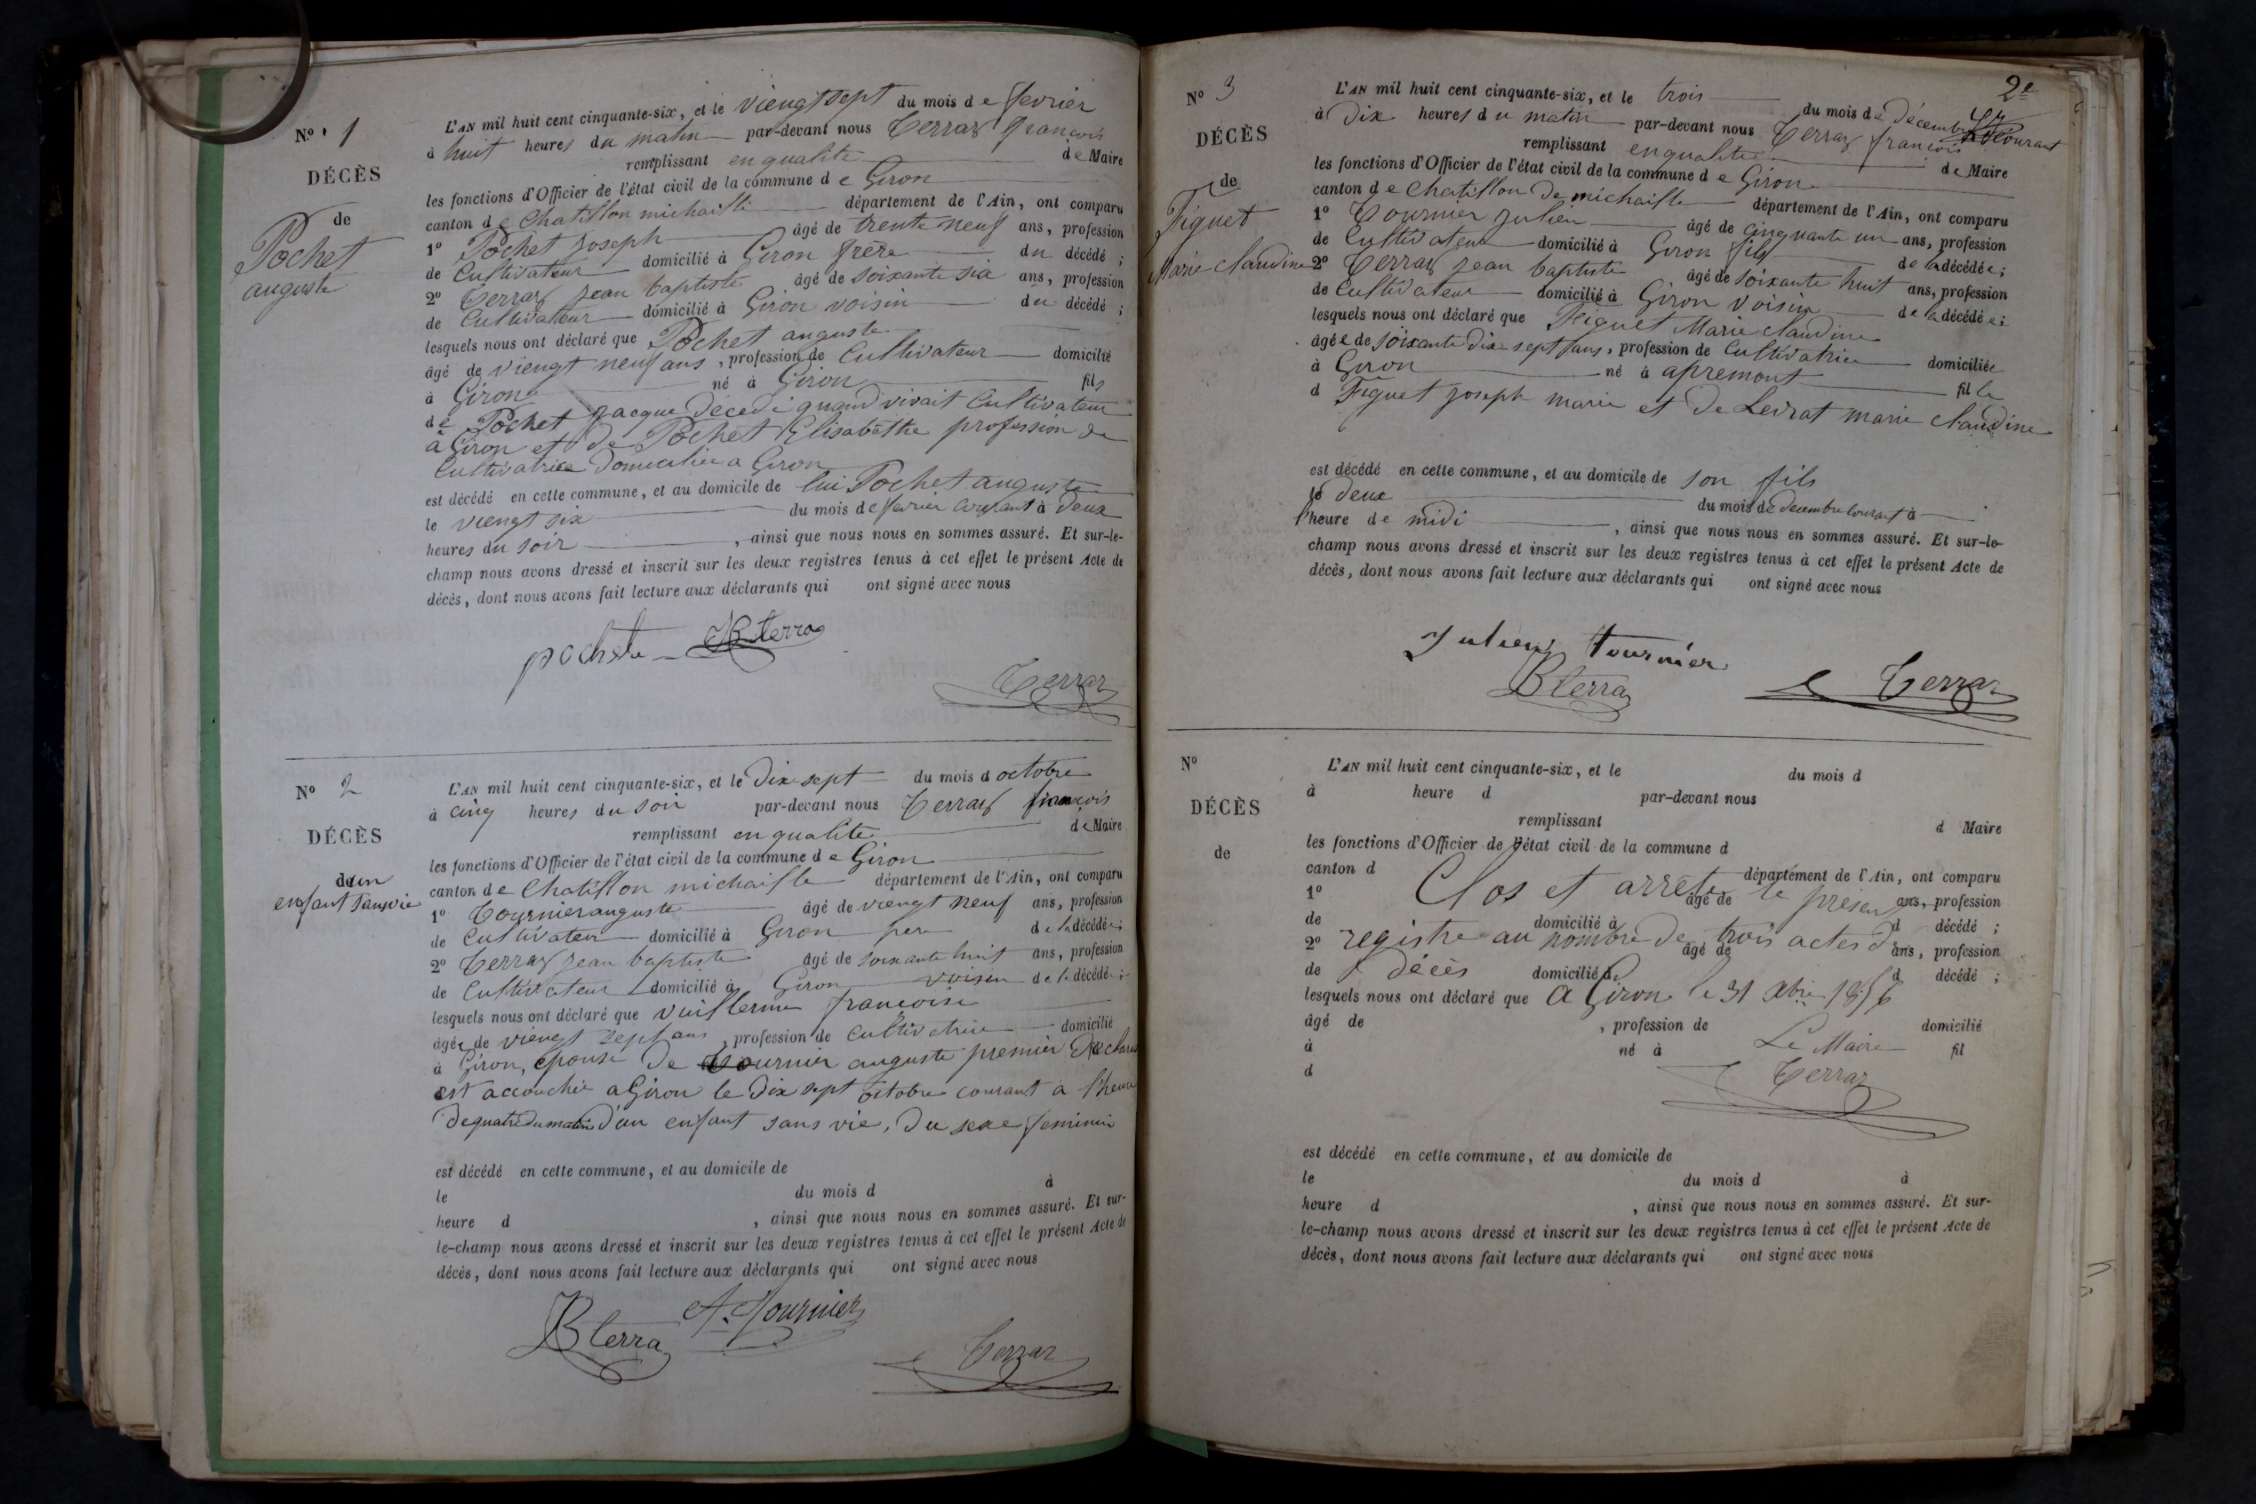 N° 1
DÉCÈS
de
Pochet
auguste
L'AN mil huit cent cinquante-six, et le viengt sept du mois de fevrier
à huit heures du matin par-devant nous Terraz françois
remplissant en qualité de Maire
les fonctions d'Officier de l'état civil de la commune de Giron
canton de Chatillon michaille département de l'Ain, ont comparu
1° Pochet joseph âgé de trente neuf ans, profession
de Cultivateur domicilié à Giron frère du décédé ;
2° Terraz jean baptiste âgé de soixante six ans, profession
de Cultivateur domicilié à Giron voisin du décédé ;
lesquels nous ont déclaré que Pochet auguste
âgé de viengt neuf ans, profession de Cultivateur domicilié
à Giron né à Giron fils
de Pochet jacque décédé quand vivait Cultivateur
a Giron et de Pochet Elisabethe profession de
Cultivatrice domiciliée a Giron
est décédé en cette commune, et au domicile de lui Pochet auguste
le viengt six du mois de fevrier courant à deux
heures du soir , ainsi que nous nous en sommes assuré. Et sur-le-
champ nous avons dressé et inscrit sur les deux registres tenus à cet effet le présent Acte de
décès, dont nous avons fait lecture aux déclarants qui ont signé avec nous
pochet JB terraz
Terraz
N° 2
DÉCÈS
d'un
enfant sans vie
L'AN mil huit cent cinquante-six, et le dix sept du mois d octobre
à cinq heures du soir par-devant nous Terraz françois
remplissant en qualité de Maire
les fonctions d'Officier de l'état civil de la commune de Giron
canton de Chatillon michaille département de l'Ain, ont comparu
1° Tournier auguste âgé de viengt neuf ans, profession
de Cultivateur domicilié à Giron pere de la décédée ;
2° Terraz jean baptiste âgé de soixante huit ans, profession
de Cultivateur domicilié à Giron voisin de la décédée ;
lesquels nous ont déclaré que vuillerme françoise
âgée de viengt sept ans, profession de cultivatrice domicilié
à Giron, épouse de tournier auguste premier declarant
est accouchée a Giron le dix sept octobre courant à l'heure
de quatre du matin d'un enfant sans vie, du sexe feminin
est décédé en cette commune, et au domicile de
le du mois d à
heure d , ainsi que nous nous en sommes assuré. Et sur-
le-champ nous avons dressé et inscrit sur les deux registres tenus à cet effet le présent Acte de
décès, dont nous avons fait lecture aux déclarants qui ont signé avec nous
JB terraz A. Tournier
Terraz
2e
N° 3
DÉCÈS
de
Figuet
Marie claudine
L'AN mil huit cent cinquante-six, et le trois du mois de décembre courant
à dix heures du matin par-devant nous Terraz françois
remplissant en qualité de Maire
les fonctions d'Officier de l'état civil de la commune de Giron
canton de Chatillon de michaille département de l'Ain, ont comparu
1° Tournier julien âgé de cinquante un ans, profession
de Cultivateur domicilié à Giron fils de la décédée ;
2° Terraz jean baptiste âgé de soixante huit ans, profession
de Cultivateur domicilié à Giron voisin de la décédée ;
lesquels nous ont déclaré que Figuet Marie claudine
âgée de soixante dix sept ans, profession de Cultivatrice domiciliée
à Giron né à apremont fille
d Figuet joseph marie et de Levrat marie claudine
est décédé en cette commune, et au domicile de son fils
le deux du mois de decembre courant à
l'heure de midi , ainsi que nous nous en sommes assuré. Et sur-le-
champ nous avons dressé et inscrit sur les deux registres tenus à cet effet le présent Acte de
décès, dont nous avons fait lecture aux déclarants qui ont signé avec nous
julien tournier
JB terraz Terraz
N°
DÉCÈS
de
L'AN mil huit cent cinquante-six, et le du mois d
à heure d par-devant nous
remplissant d Maire
les fonctions d'Officier de l'état civil de la commune d
canton d département de l'Ain, ont comparu
1° âgé de ans, profession
Clos et arreté le present
de domicilié à d décédé ;
2° âgé de ans, profession
registre au nombre de trois actes de
de domicilié à d décédé ;
décès
lesquels nous ont déclaré que
A Giron le 31 Xbre 1856
âgé de , profession de domicilié
à né à fil
Le Maire
d
Terraz
est décédé en cette commune, et au domicile de
le du mois d à
heure d , ainsi que nous nous en sommes assuré. Et sur-
le-champ nous avons dressé et inscrit sur les deux registres tenus à cet effet le présent Acte de
décès, dont nous avons fait lecture aux déclarants qui ont signé avec nous